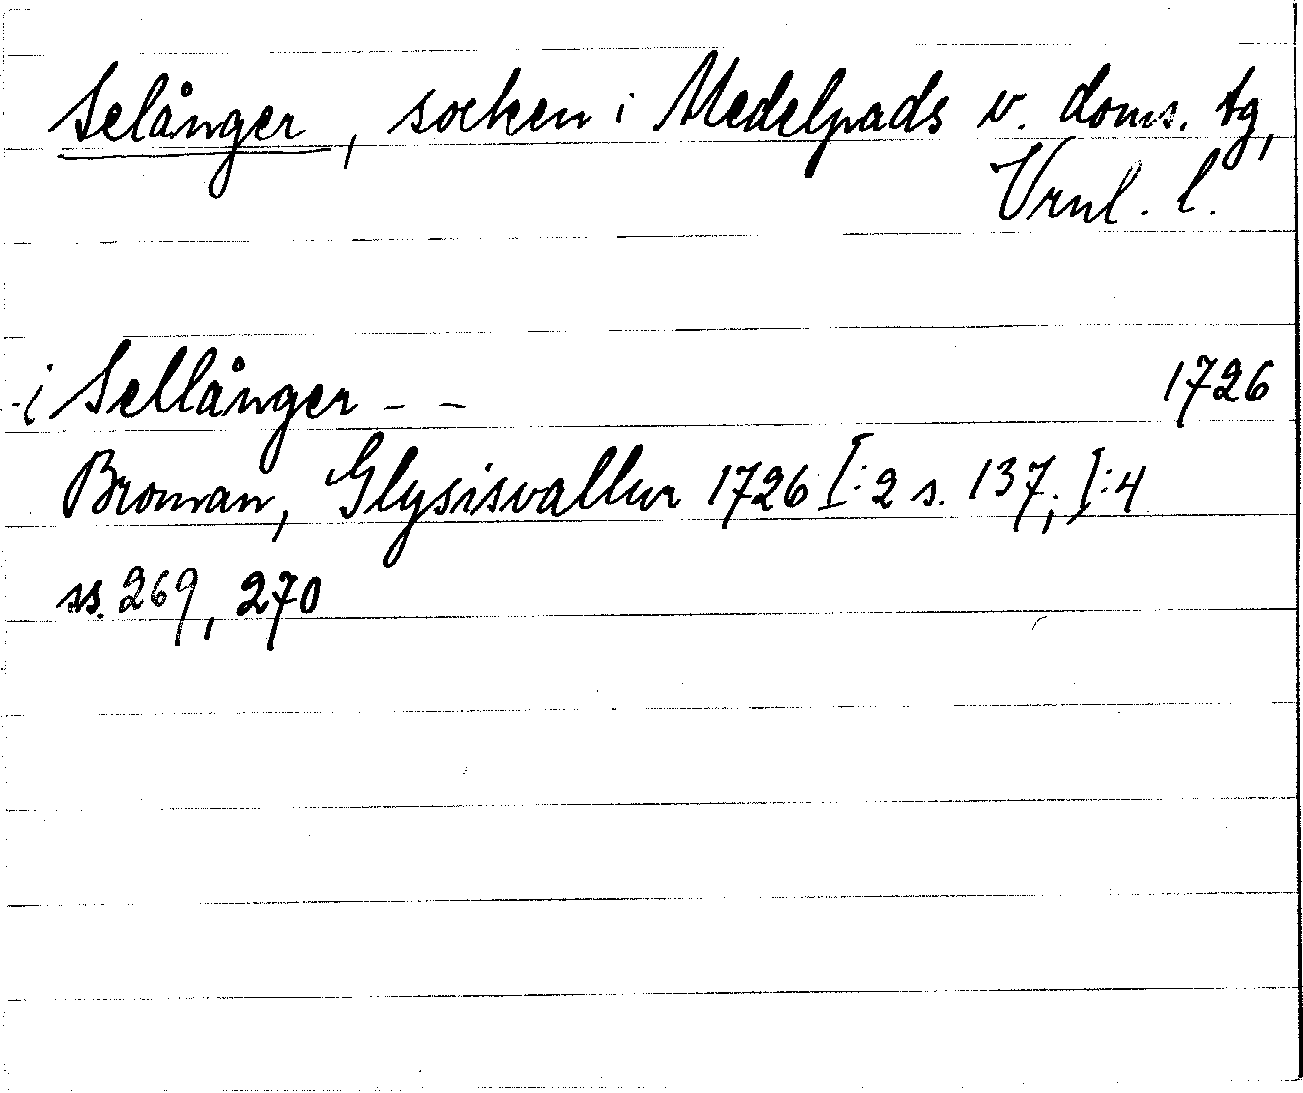 Selånger, socken i Medelpads v. doms. tg,
Vrnl. l.
i Sellånger - - 1726
Broman, Glysisvallur 1726 I:2 s. 137; I:4
ss. 269, 270